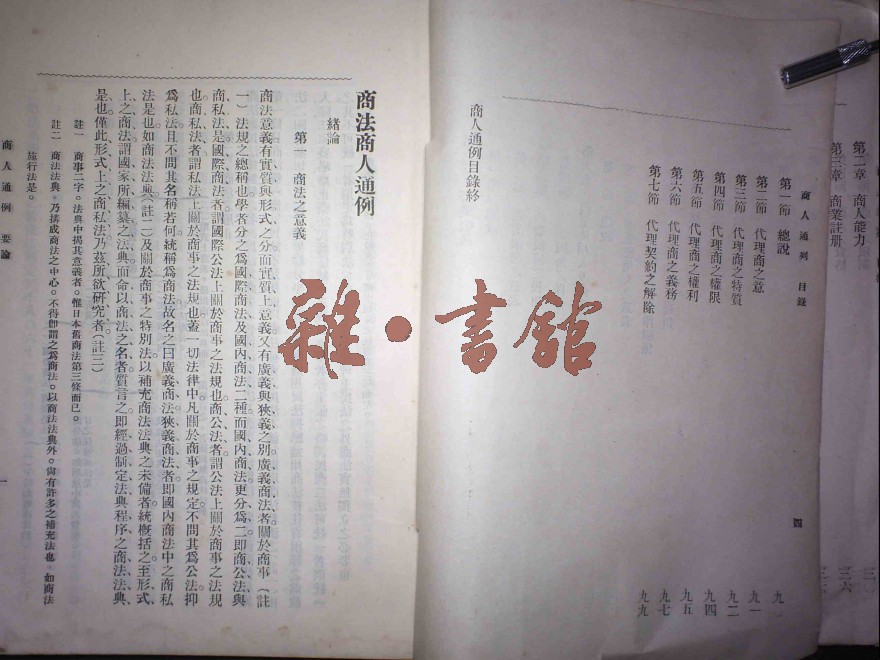 第二章　商人能力
第三章　商業註册
三六
商人通例　目錄
四
第一節　總說　九一
第二節　代理商之意　九一
第三節　代理商之特質　九二
第四節　代理商之權限　九四
第五節　代理商之權利　九五
第六節　代理商之義務　九七
第七節　代理契約之解除　九九
商人通例目錄終
雜・書館
商法商人通例
緒論
第一　商法之意義
商法意義有實質與形式之分而實質上意義又有廣義與狹義之別廣義商法者關於商事（註
一）法規之總稱也學者分之爲國際商法及國內商法二種而國內商法更分爲二即商公法與
商私法是國際商法者謂國際公法上關於商事之法規也商公法者謂公法上關於商事之法規
也商私法者謂私法上關於商事之法規也蓋一切法律中凡關於商事之規定不問其爲公法抑
爲私法且不問其名稱若何統稱爲商法故名之曰廣義商法狹義商法者即國內商法中之商私
法是也如商法法典（註二）及關於商事之特別法以補充商法法典之未備者統概括之至形式
上之商法謂國家所編纂之法典而命以商法之名者質言之即經過制定法典程序之商法法典
是也僅此形式上之商私法乃茲所欲研究者（註三）
註一　商事二字。法典中揭其意義者。惟日本舊商法第三條而已。
註二　商法法典。乃搆成商法之中心。不得即謂之爲商法。以商法法典外。尚有許多之補充法也。如商法
施行法是。
商人通例　要論
一